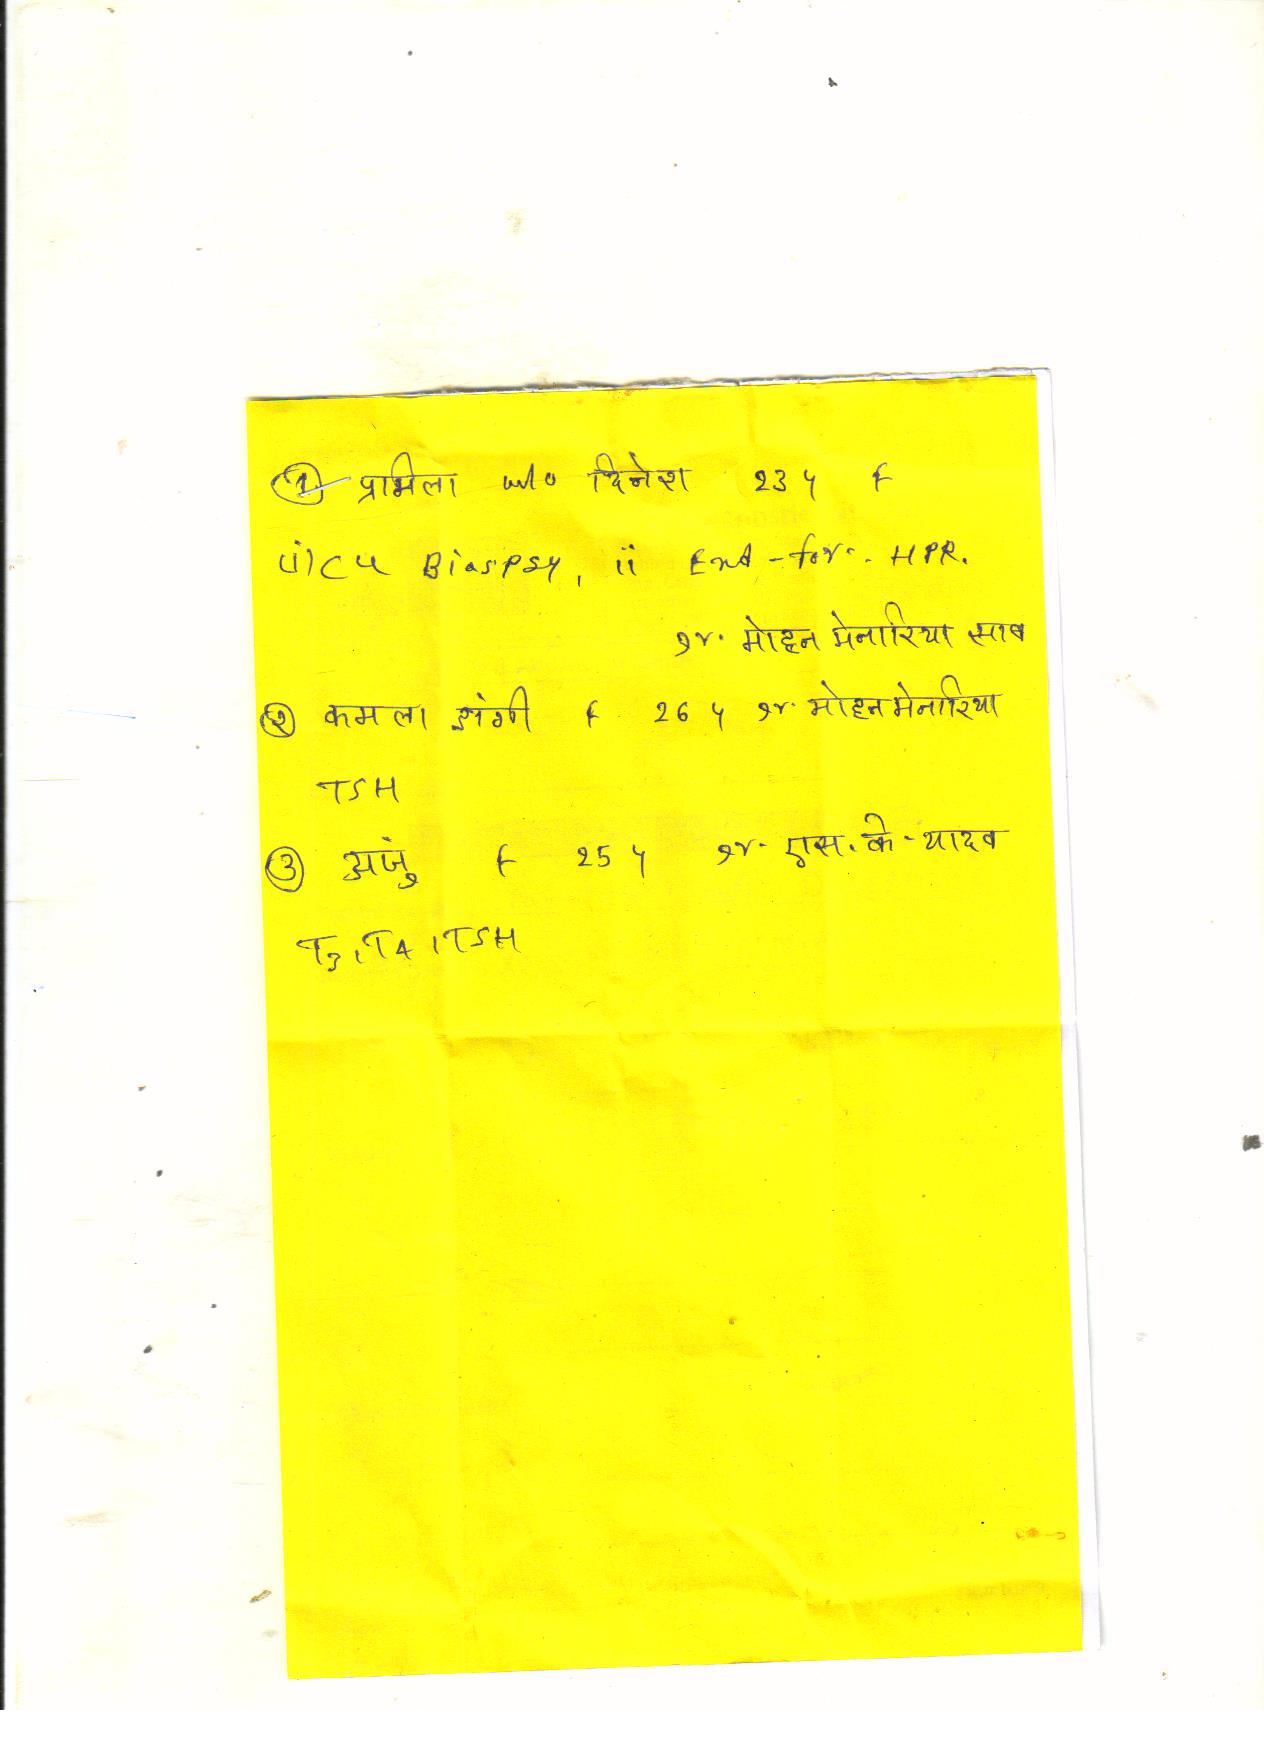 ① प्रामिला w/o दिनेश 23 y F
i) CU Biospsy, ii End - for - HPR.
डॉ. मोहन मेनारिया साब
② कमला डांगी F 26 y डॉ. मोहन मेनारिया
TSH
③ अजुं F 25 y डॉ. एस. के - यादव
T3, T4, TSH